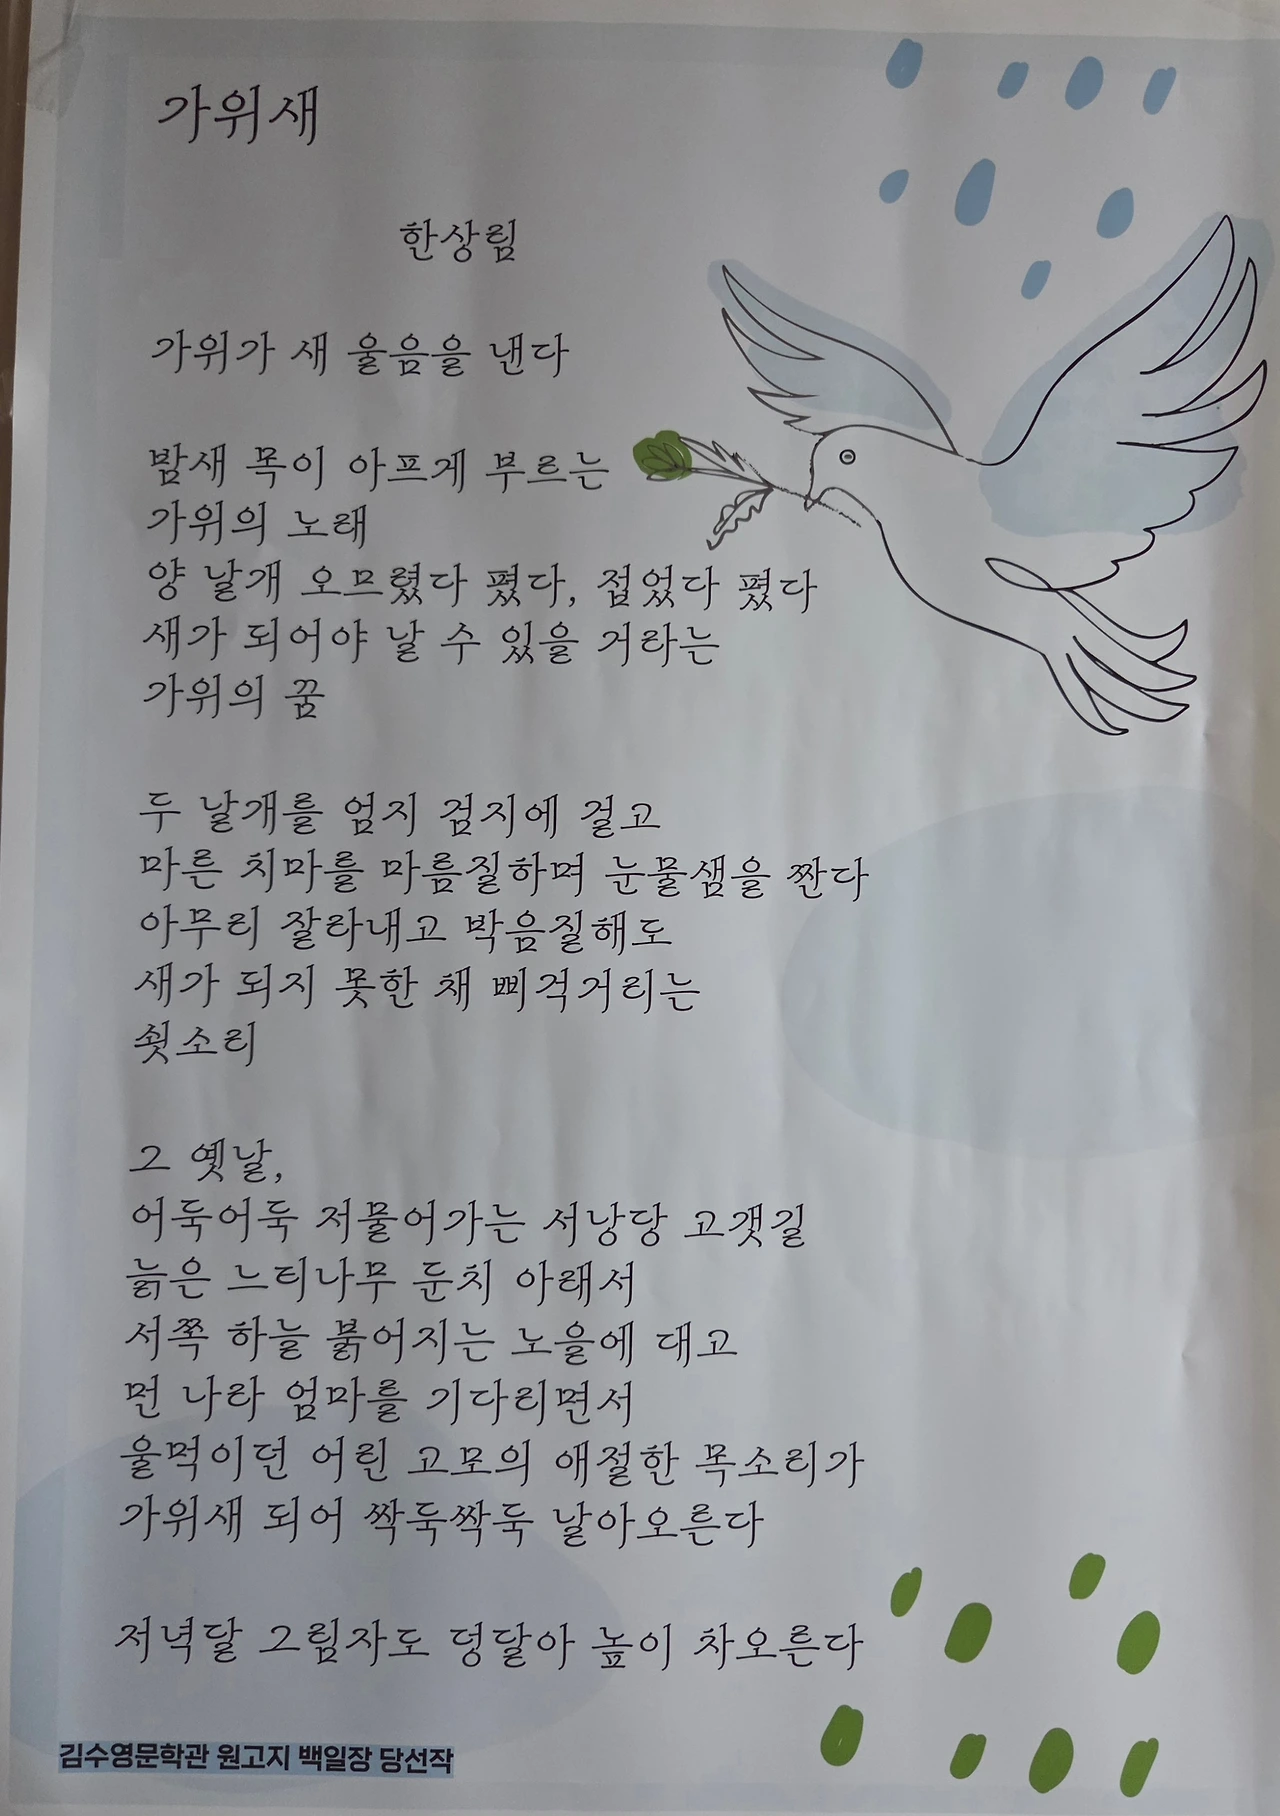 가위새
한상림
가위가 새 울음을 낸다
밤새 목이 아프게 부르는
가위의 노래
양 날개 오므렸다 폈다, 접었다 폈다
새가 되어야 날 수 있을 거라는
가위의 꿈
두 날개를 엄지 검지에 걸고
마른 치마를 마름질하며 눈물샘을 짠다
아무리 잘라내고 박음질해도
새가 되지 못한 채 삐걱거리는
쇳소리
그 옛날,
어둑어둑 저물어가는 서낭당 고갯길
늙은 느티나무 둔치 아래서
서쪽 하늘 붉어지는 노을에 대고
먼 나라 엄마를 기다리면서
울먹이던 어린 고모의 애절한 목소리가
가위새 되어 싹둑싹둑 날아오른다
저녁달 그림자도 덩달아 높이 차오른다
김수영문학관 원고지 백일장 당선작